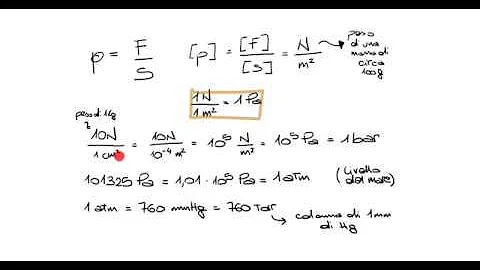 p = F/S [p] = [F]/[S] = N/m² → peso di una massa di circa 100g
1N/1m² = 1 Pa
peso di 1kg
10N/1cm² = 10N/10⁻⁴m² = 10⁵ N/m² = 10⁵ Pa = 1 bar
101325 Pa = 1,01 · 10⁵ Pa = 1 atm (livello del mare)
1 atm = 760 mmHg = 760 Torr → colonna di 1mm di Hg